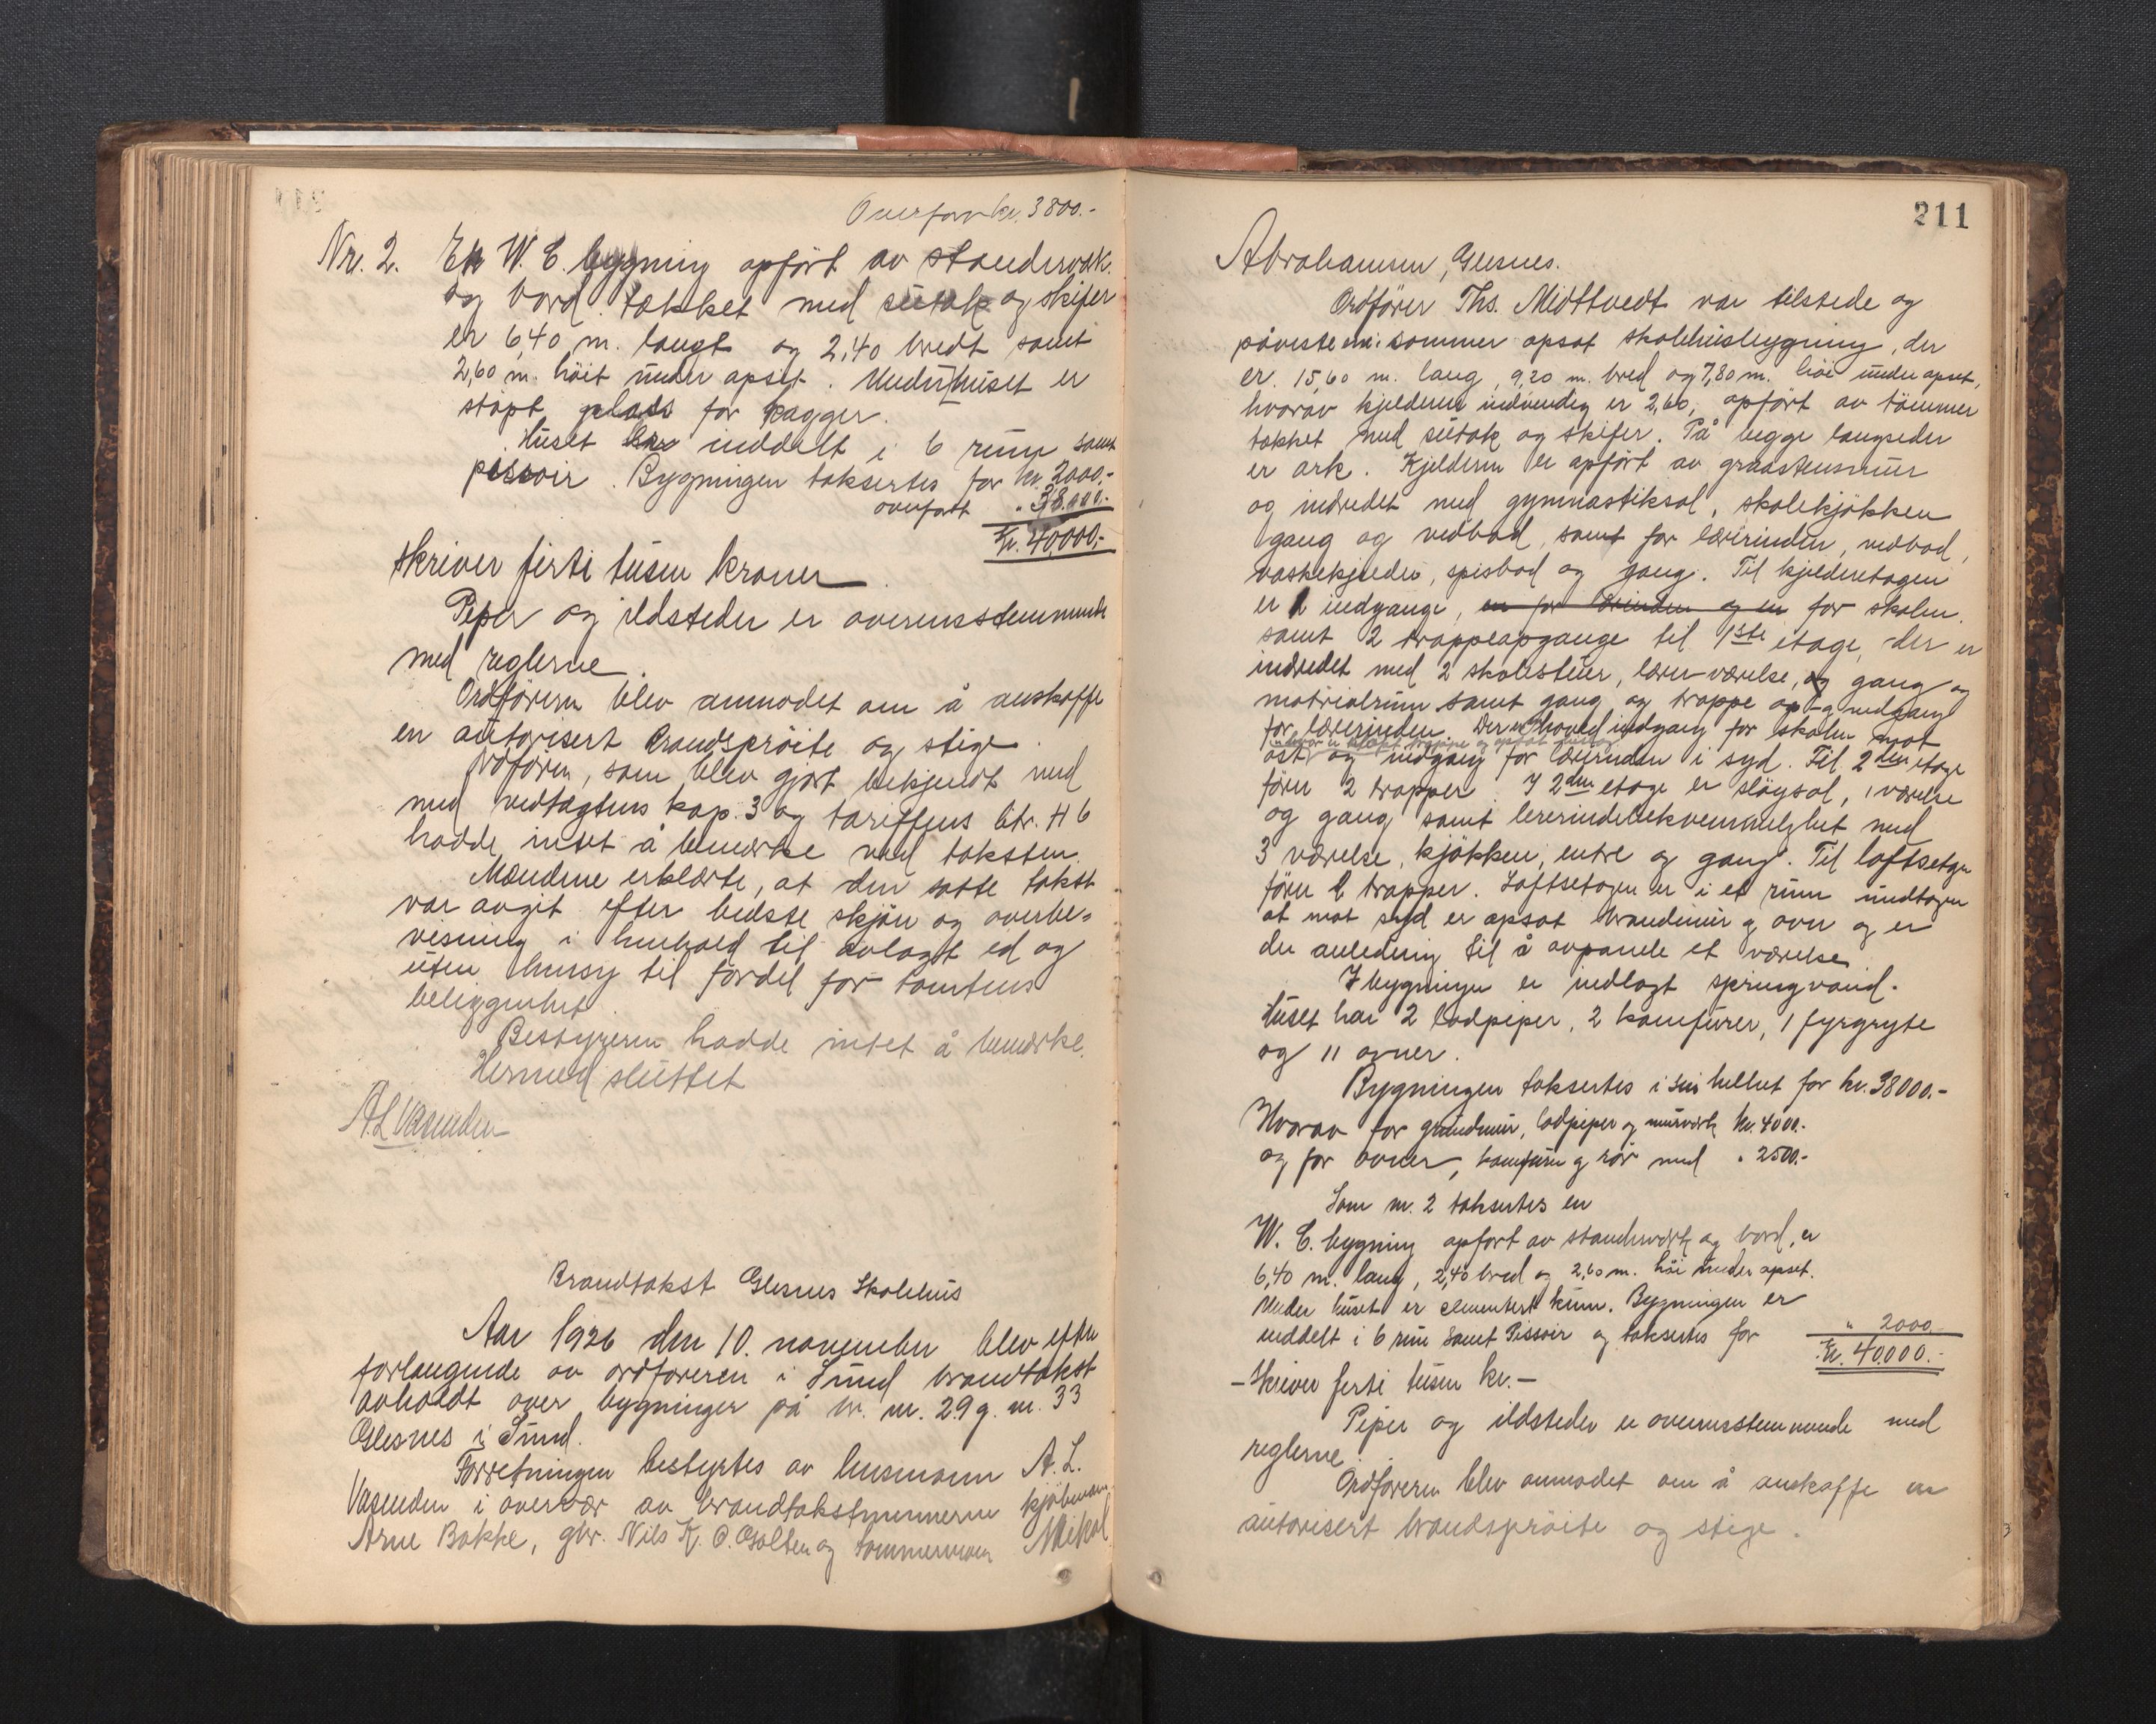 Overført kr. 3800.-
Nr. 2. En W. C. bygning opført av stenderverk
og bord. tækket med sutak og skifer
er 6,40 m. langt og 2,40 bredt samt
2,60 m. höit under opset. Under huset er
stöpt plads for kagger.
Huset er inddelt i 6 rum samt
pissoir. Bygningen taksertes for kr. 2000.-
overført " 38.000.-
Kr. 40,000.-
skriver firti tusen kroner
Piper og ildsteder er overensstemmende
med reglerne.
Ordföreren blev anmodet om å anskaffe
en autorisert brandspröite og stige.
Ordföreren, som blev gjort bekjendt med
med vedtægtens kap. 3 og tariffens litr. H 6
hadde intet å bemerke ved taksten.
Mændene erklærte, at den satte takst
var avgit efter bedste skjön og overbe-
visning i henhold til avlagt ed og
uten hensyn til fordel for tomtens
beliggenhet.
Bestyreren hadde intet å bemerke.
Hermed sluttet
A. L. Vasenden
Brandtakst Glesnes Skolehus
Aar 1926 den 10. november blev efter
forlangende av ordföreren i Sund brandtakst
avholdt over bygninger på br. nr. 29 g. nr. 33
Glesnes i Sund.
Forretningen bestyrtes av lensmann A. L.
Vasenden i overvær av brandtakstmennerne kjöbmann
Arne Bakke, gbr. Nils K. O. Golten og tömmermann Mikal
211
Abrahamsen, Glesnes.
Ordförer Ths. Midttvedt var tilstede og
påviste en i sommer opsat skolehusbygning, der
er 15,60 m. lang, 9,20 m. bred og 7,80 m. höi under opset,
hvorav kjelderen indvendig er 2,60, opfört av tömmer
tækket med sutak og skifer. På begge langsider
er ark. Kjelderen er opfört av graastensmur
og indredet med gymnastiksal, skolekjökken
gang og vedbod, samt for lærerinden, vedbod,
vaskekjelder, spisbod og gang. Til kjelderetagen
er 2 indgange, en for lærerinden og en for skolen.
samt 2 trappeopgange til 1ste etage, der er
indredet med 2 skolestuer, lærer-værelse, og gang og
materialrum samt gang og trappe op- og nedgang
for lærerinden. Der er hovedindgang for skolen mot
öst og indgang for lærerinden i syd. Til 2den etage
förer 2 trapper. I 2den etage er slöysal, 1 værelse
og gang samt lererindebekvemmelighet med
3 værelse, kjökken, entre og gang. Til loftsetgn
förer 2 trapper. Loftsetagen er i et rum undtagen
at mot syd er opsat brandmur og ovn og er
der anledning til å avpanele et værelse.
I bygningen er indlagt springvand.
Huset har 2 lodpiper, 2 komfurer, 1 fyrgryte
og 11 ovner.
Bygningen taksertes i sin helhet for kr. 38000.-
Hvorav for grundmur, lodpiper og murverk kr. 4000.-
og for ovner, komfurer og rör med " 2500.-
Som nr. 2 taksertes en
W. C. bygning opfört av stenderverk og bord, er
6,40 m. lang, 2,40 bred og 2,60 m. höi under opset.
Under huset er cementert kum. Bygningen er
inddelt i 6 rum samt Pissoir og taksertes for " 2000.-
Kr. 40.000.-
- Skriver firti tusen kr. -
Piper og ildsteder er overensstemmende med
reglerne.
Ordföreren blev anmodet om å anskaffe en
autorisert brandspröite og stige.